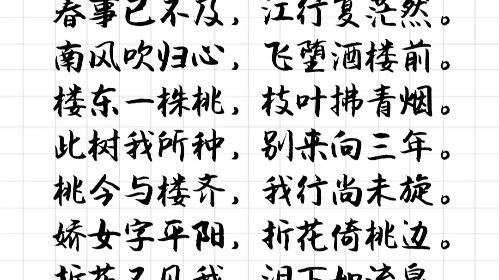 春事已不及，江行复茫然。
南风吹归心，飞堕酒楼前。
楼东一株桃，枝叶拂青烟。
此树我所种，别来向三年。
桃今与楼齐，我行尚未旋。
娇女字平阳，折花倚桃边。
折花不见我，泪下如流泉。